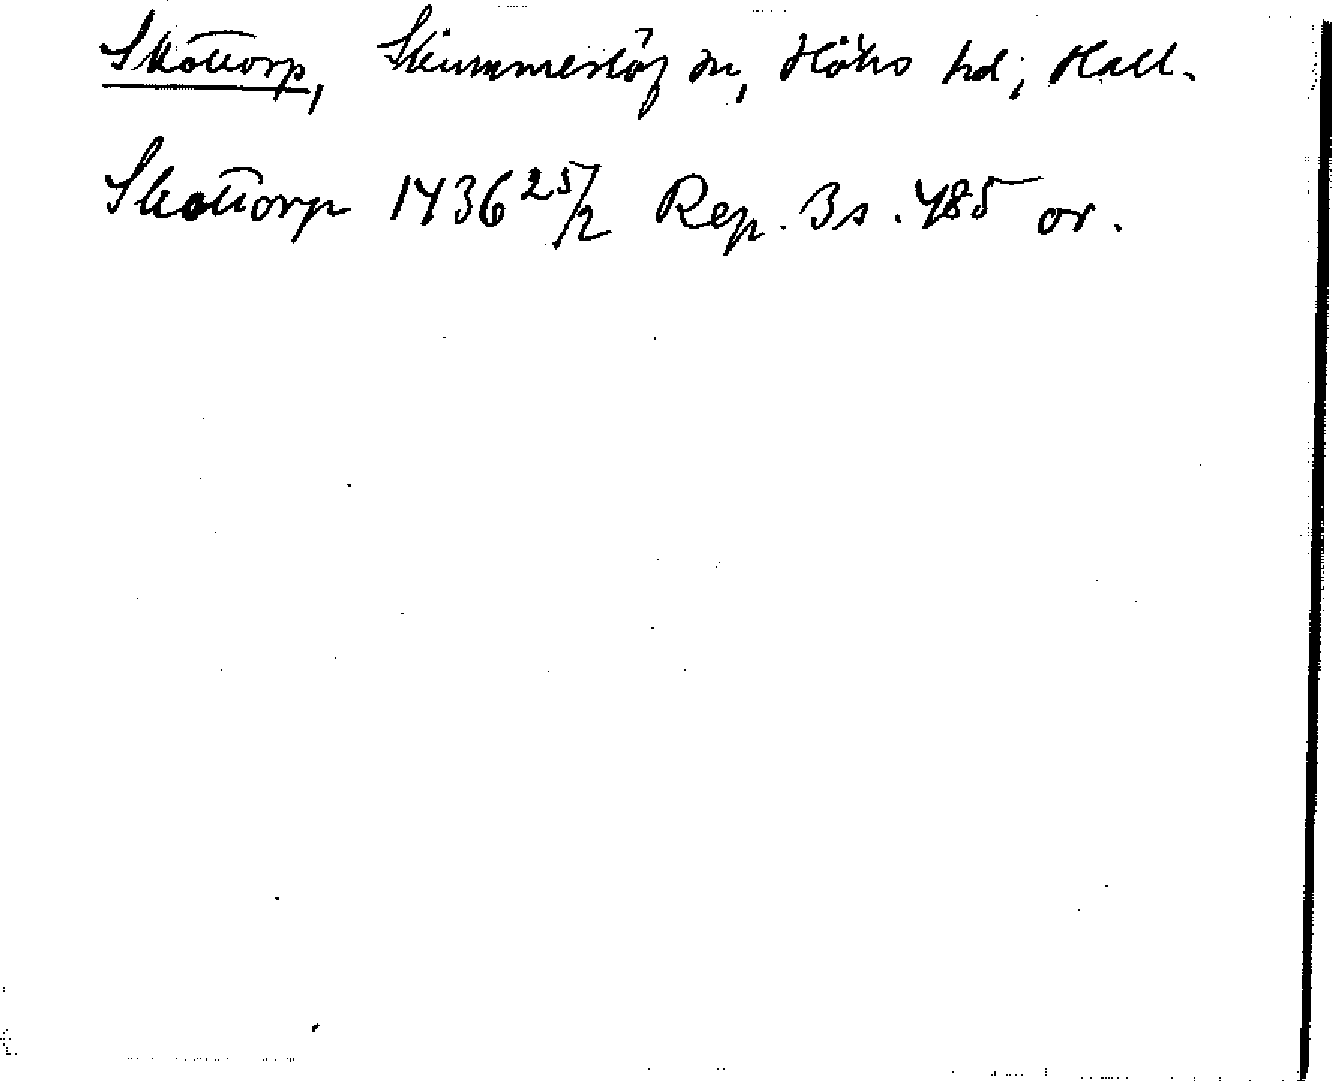 Skottorp, Skummeslöf sn, Höks hd, Hall.
Skottorp 1436 25/2 Rep. 3 s. 485 or.